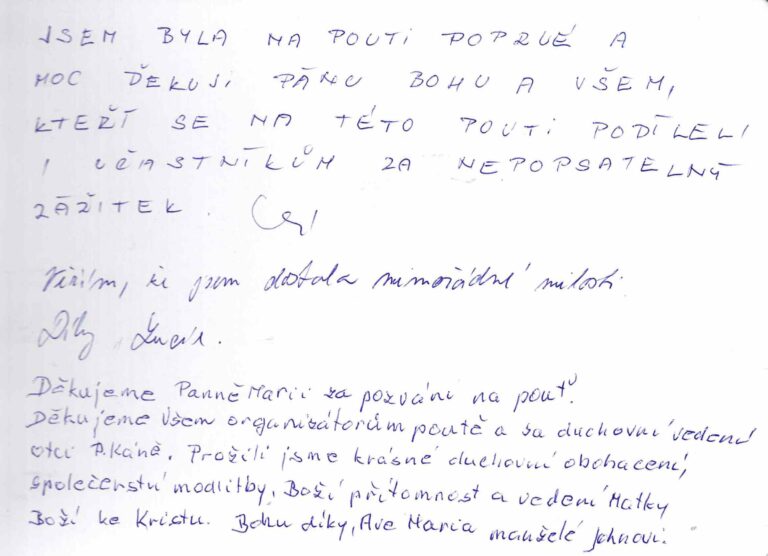 JSEM BYLA NA POUTI POPRVÉ A
MOC ĎEKUJI PÁNU BOHU A VŠEM,
KTEŘÍ SE NA TÉTO POUTI PODÍLELI
I ÚČASTNÍKŮM ZA NEPOPSATELNÝ
ZÁŽITEK.
Věřím, že jsem dostala mimořádné milosti.
Díky
Děkujeme Panně Marii za pozvání na pouť.
Děkujeme všem organizátorům poutě a za duchovní vedení
otci P. Káně. Prožili jsme krásné duchovní obohacení,
společenství modlitby, Boží přítomnost a vedení Matky
Boží ke Kristu. Bohu díky, Ave Maria manželé